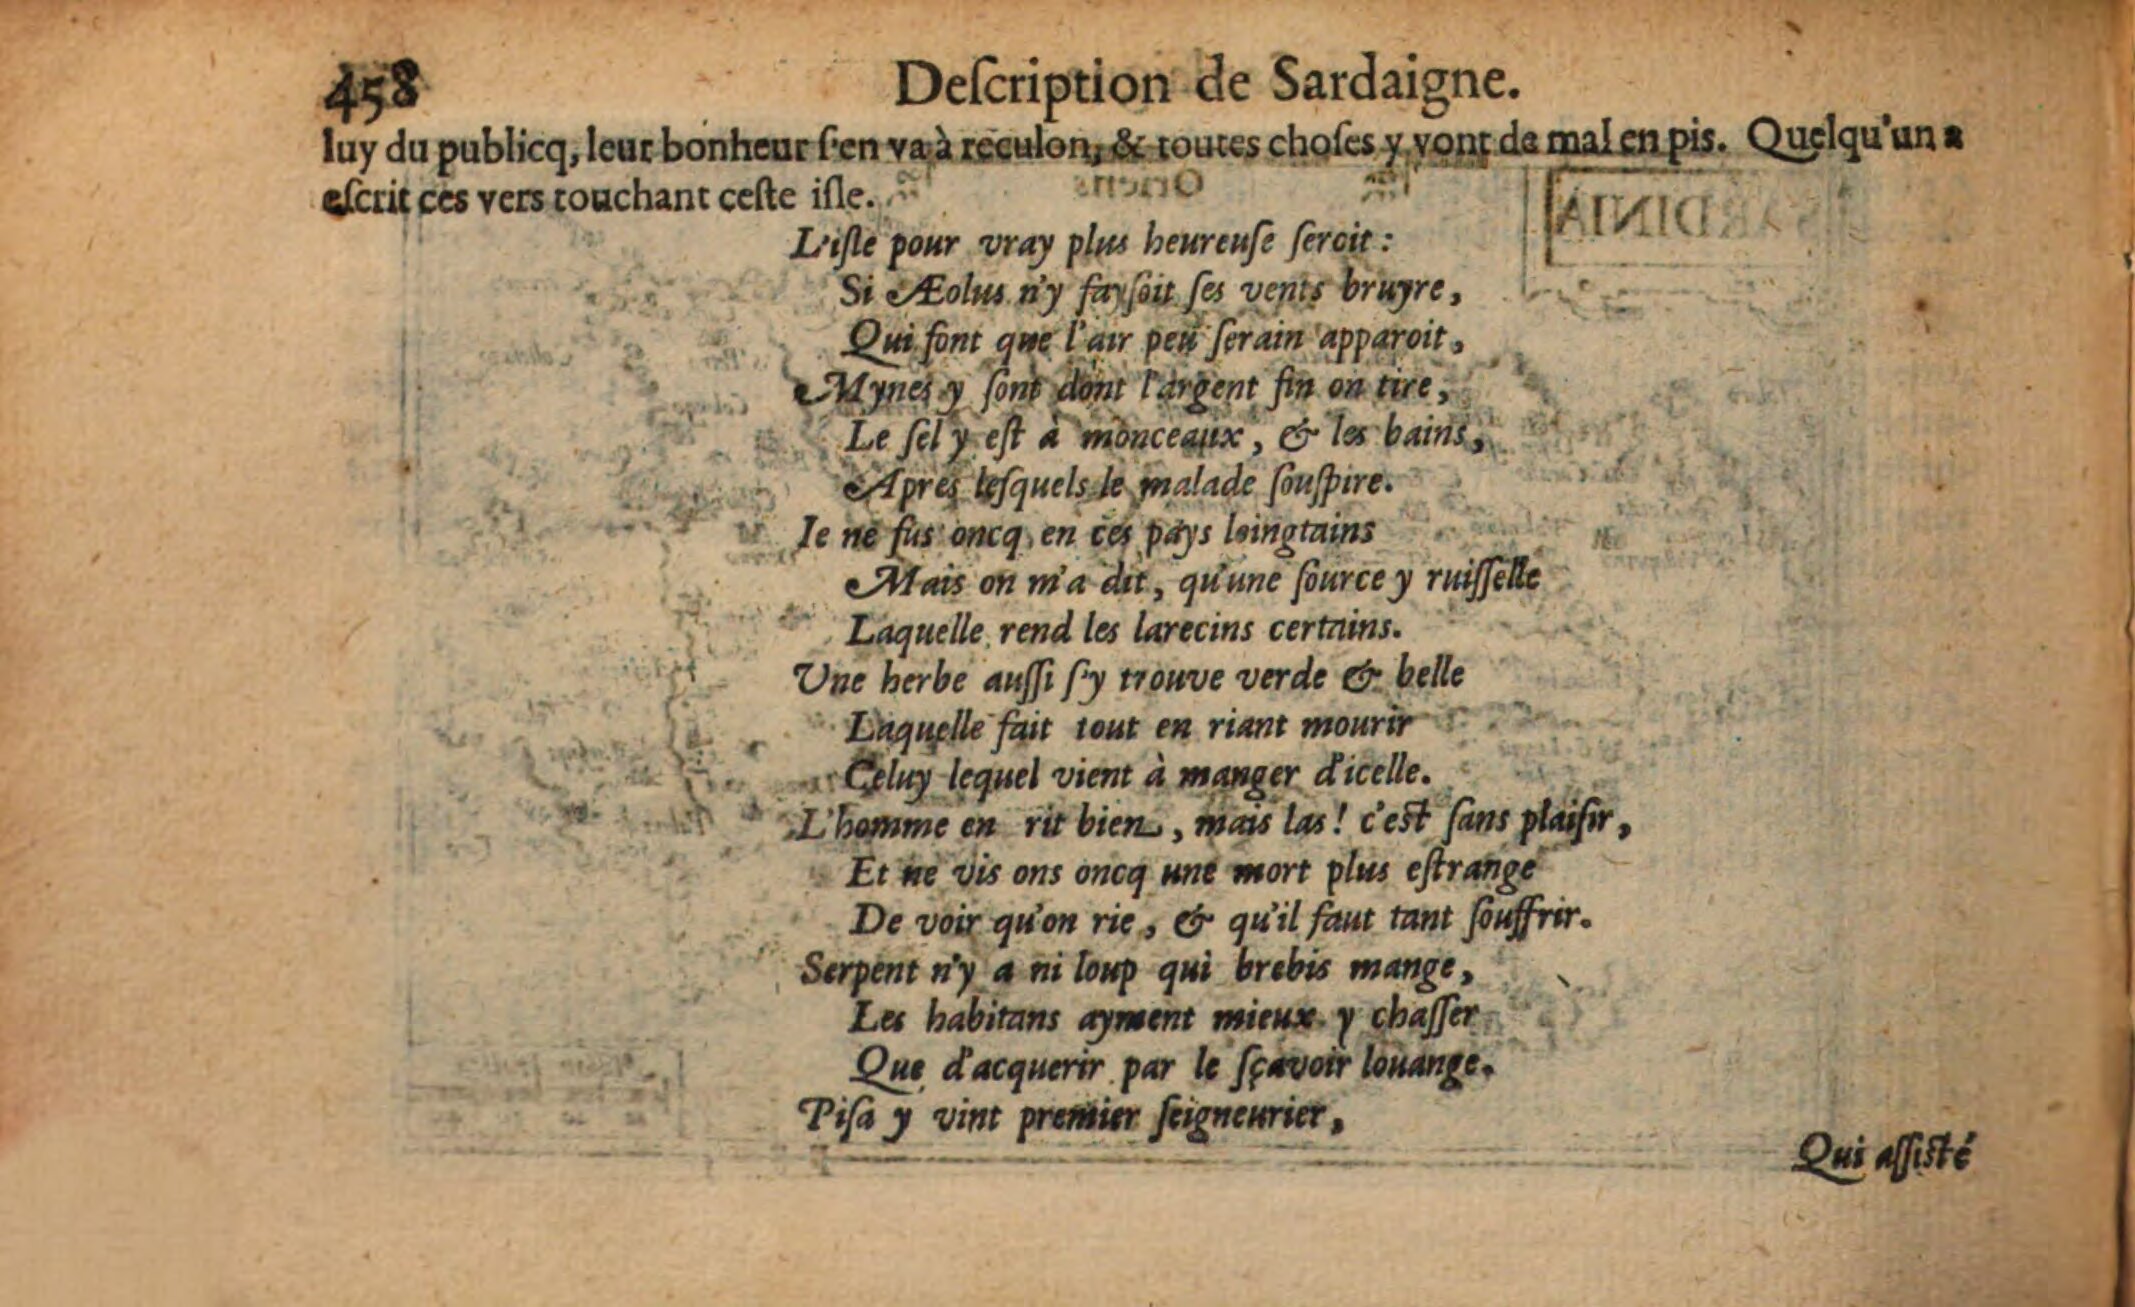 458 Deſcription de Sardaigne.
luy du publicq, leur bonheur ſ'en va à reculon, & toutes choſes y vont de mal en pis. Quelqu'un a
eſcrit ces vers touchant ceſte iſle.
L'iſle pour vray plus heureuſe ſeroit :
Si Æolus n'y fayſoit ſes vents bruyre,
Qui font que l'air peu ſerain apparoit,
Mynes y ſont dont l'argent fin on tire,
Le ſel y eſt à monceaux, & les bains,
Apres leſquels le malade ſouſpire.
Ie ne fus oncq en ces pays loingtains
Mais on m'a dit, qu'une ſource y ruiſſelle
Laquelle rend les larecins certains.
Une herbe auſſi ſ'y trouve verde & belle
Laquelle fait tout en riant mourir
Celuy lequel vient à manger d'icelle.
L'homme en rit bien, mais las! c'eſt ſans plaiſir,
Et ne vis ons oncq une mort plus eſtrange
De voir qu'on rie, & qu'il faut tant ſouffrir.
Serpent n'y a ni loup qui brebis mange,
Les habitans ayment mieux y chaſſer
Que d'acquerir par le ſçavoir louange.
Piſa y vint premier ſeigneurier,
Qui aſſiſté